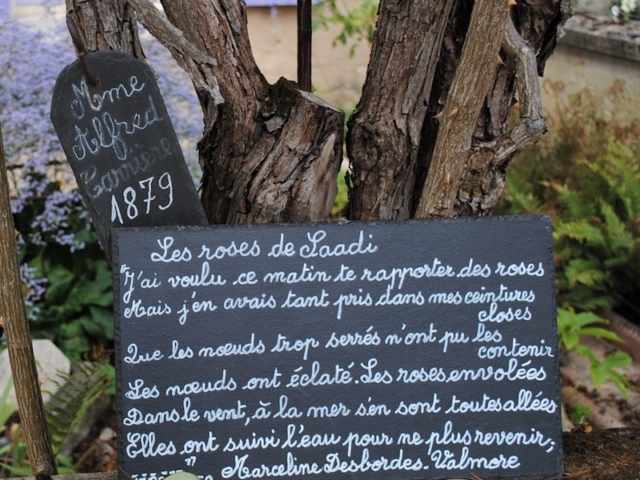 Mme
Alfred
Carrière
1879
Les roses de Saadi
"J'ai voulu ce matin te rapporter des roses
Mais j'en avais tant pris dans mes ceintures
closes
Que les nœuds trop serrés n'ont pu les
contenir
Les nœuds ont éclaté. Les roses envolées
Dans le vent, à la mer s'en sont toutes allées
Elles ont suivi l'eau pour ne plus revenir;
" Marceline Desbordes-Valmore